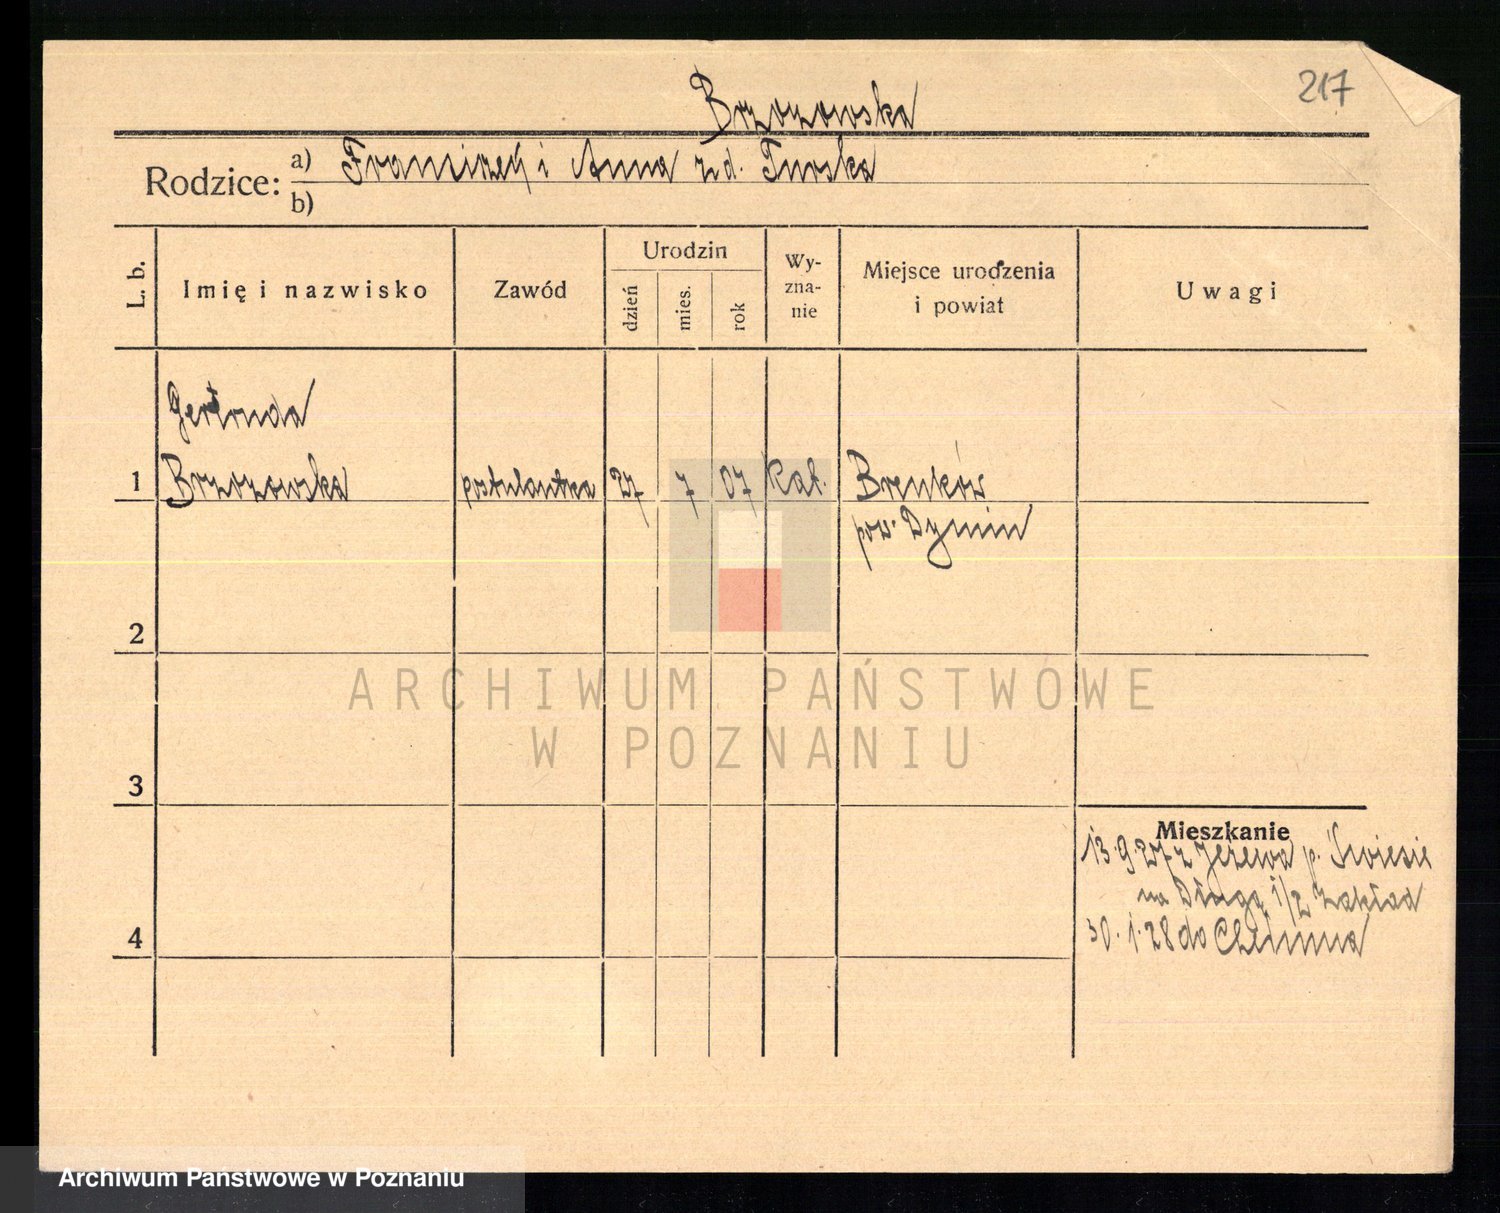 217
Brzozowska
Rodzice: a) Franciszek i Anna zd. Turska
b)
L. b.
Imię i nazwisko
Zawód
Urodzin
dzień
mies.
rok
Wy-
zna-
nie
Miejsce urodzenia
i powiat
Uwagi
Gertruda
1 Brzozowska postulantka 27 7 07 kat.
pow.
2
3
4
Mieszkanie
13.9.27 z Jeżewa p. Świecie
na Długą 1/2 Zakład
30.1.28 do Chełmna
ARCHIWUM PAŃSTWOWE
W POZNANIU
Archiwum Państwowe w Poznaniu